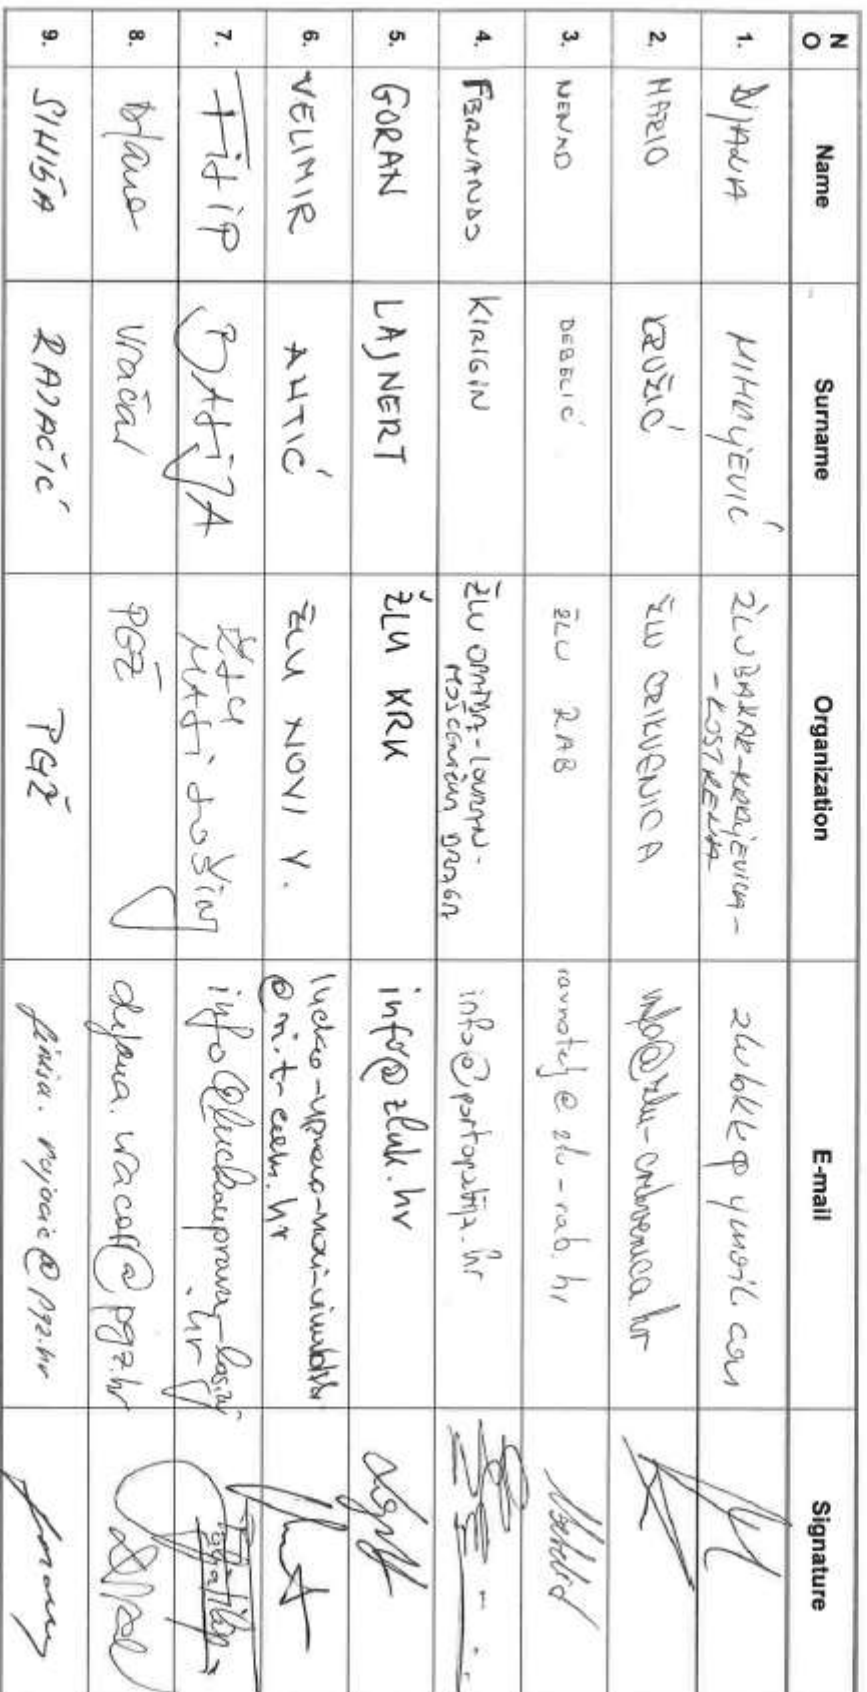 NO Name Surname Organization E-mail Signature
1. DIJANA MIHALJEVIĆ ŽLU BAKAR-KRALJEVICA-
-KOSTRENA
2. MARIO KRUŽIĆ ŽLU CRIKVENICA info@zlu-crikvenica.hr
3. NENAD DEBELIĆ ŽLU RAB ravnatelj@zlu-rab.hr
4. FERNANDO KIRIGIN ŽLU OPATIJA-LOVRAN- info@portopatija.hr
MOŠĆENIČKA DRAGA
5. GORAN LAJNERT ŽLU KRK info@zluk.hr
6. VELIMIR ANTIĆ ŽLU NOVI V.
@ri.t-com.hr
7. FILIP BALIJA ŽLU
MALI LOŠINJ info@luckauprava-losinj
.hr
8. Vračar PGŽ dijana.vracar@pgz.hr
9. SINIŠA RAJAČIĆ PGŽ sinisa.rajacic@pgz.hr